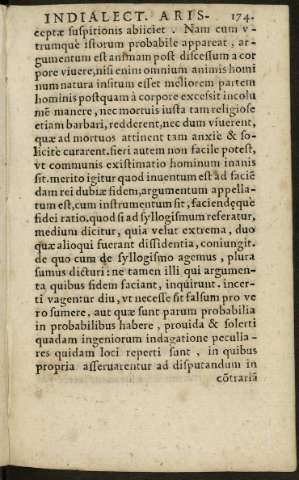 INDIALECT. ARIS- 174.
ceptæ suspitionis abiiciet. Nam cum v-
trumque istorum probabile appareat, ar-
gumentum est animam post discessum a cor
pore viuere, nisi enim omnium animis homi
num natura insitum esset meliorem partem
hominis postquam à corpore excessit incolu
mē manere, nec mortuis iusta tam religiose
etiam barbari, redderent, nec dum viuerent,
quæ ad mortuos attinent tam anxiè & so-
licitè curarent. fieri autem non facile potest,
vt communis existimatio hominum inanis
sit. merito igitur quod inuentum est ad faciē
dam rei dubiæ fidem, argumentum appella-
tum est, cum instrumentum sit, faciendęque
fidei ratio. quod si ad syllogismum referatur,
medium dicitur, quia velut extrema, duo
quæ alioqui fuerant dissidentia, coniungit.
de quo cum de syllogismo agemus, plura
sumus dicturi: ne tamen illi qui argumen-
ta quibus fidem faciant, inquirunt. incer-
ti vagentur diu, vt necesse sit falsum pro ve
ro sumere, aut quæ sunt parum probabilia
in probabilibus habere, prouida & solerti
quadam ingeniorum indagatione peculia-
res quidam loci reperti sunt, in quibus
propria asseruarentur ad disputandum in
cōtrariā